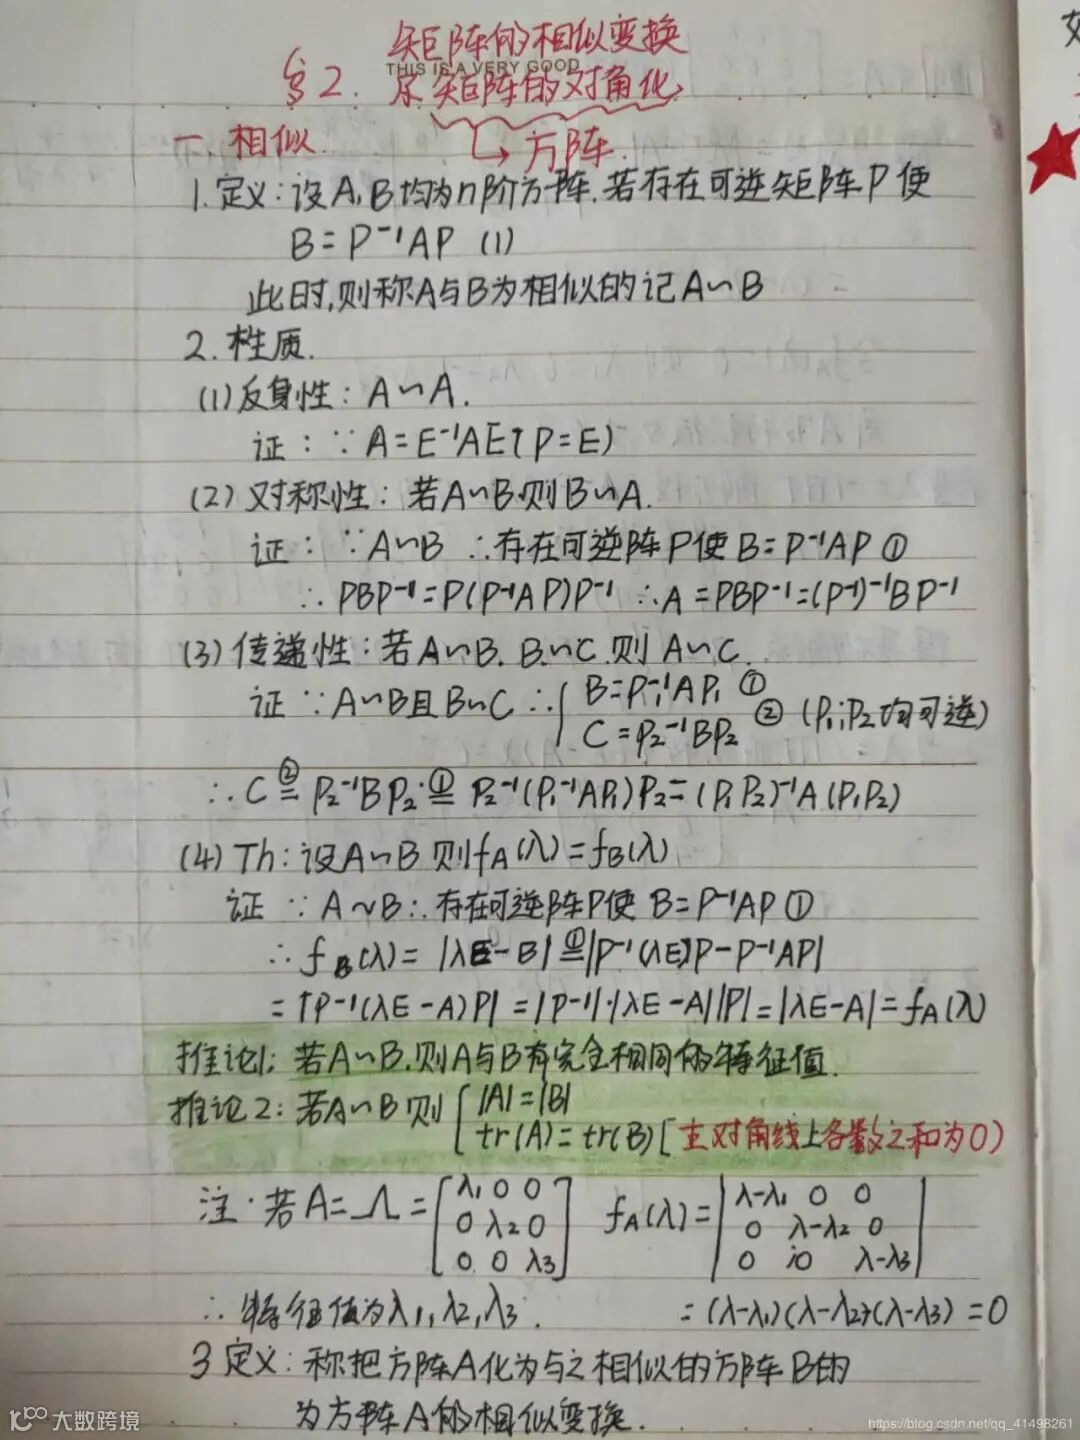 矩阵的相似变换
THIS IS A VERY GOOD
§2. 求矩阵的对角化
→方阵.
一. 相似.
1. 定义: 设A, B均为n阶方阵.若存在可逆矩阵P使
B = P⁻¹AP (1)
此时,则称A与B为相似的记A∽B
2. 性质.
(1) 反身性: A∽A.
证: ∵ A = E⁻¹AE (P=E)
(2) 对称性: 若A∽B.则B∽A.
证: ∵A∽B ∴存在可逆阵P使 B=P⁻¹AP ①
∴ PBP⁻¹ = P(P⁻¹AP)P⁻¹ ∴A = PBP⁻¹=(P⁻¹)⁻¹BP⁻¹
(3) 传递性: 若A∽B. B∽C.则 A∽C.
证 ∵A∽B且B∽C ∴{ B=P₁⁻¹AP₁ ①
C=P₂⁻¹BP₂ ② (P₁,P₂均可逆)
∴ C ②= P₂⁻¹BP₂ ①= P₂⁻¹(P₁⁻¹AP₁)P₂ = (P₁P₂)⁻¹A(P₁P₂)
(4) Th: 设A∽B 则f_A(λ)=f_B(λ)
证 ∵ A∼B ∴存在可逆阵P使 B=P⁻¹AP ①
∴ f_B(λ) = |λE-B| ①= |P⁻¹(λE)P-P⁻¹AP|
= |P⁻¹(λE-A)P| = |P⁻¹|·|λE-A||P| = |λE-A| = f_A(λ)
推论1: 若A∽B.则A与B有完全相同的特征值.
推论2: 若A∽B 则 { |A|=|B|
tr(A)= tr(B) [主对角线上各数之和为0)
注: 若A=Λ= [λ₁ 0 0 f_A(λ)= |λ-λ₁ 0 0
0 λ₂ 0 0 λ-λ₂ 0
0 0 λ₃] 0 0 λ-λ₃|
∴ 特征值为λ₁,λ₂,λ₃. = (λ-λ₁)(λ-λ₂)(λ-λ₃) = 0
3 定义: 称把方阵A化为与之相似的方阵B的
为方阵A的相似变换.
大数跨境
https://blog.csdn.net/qq_41498261